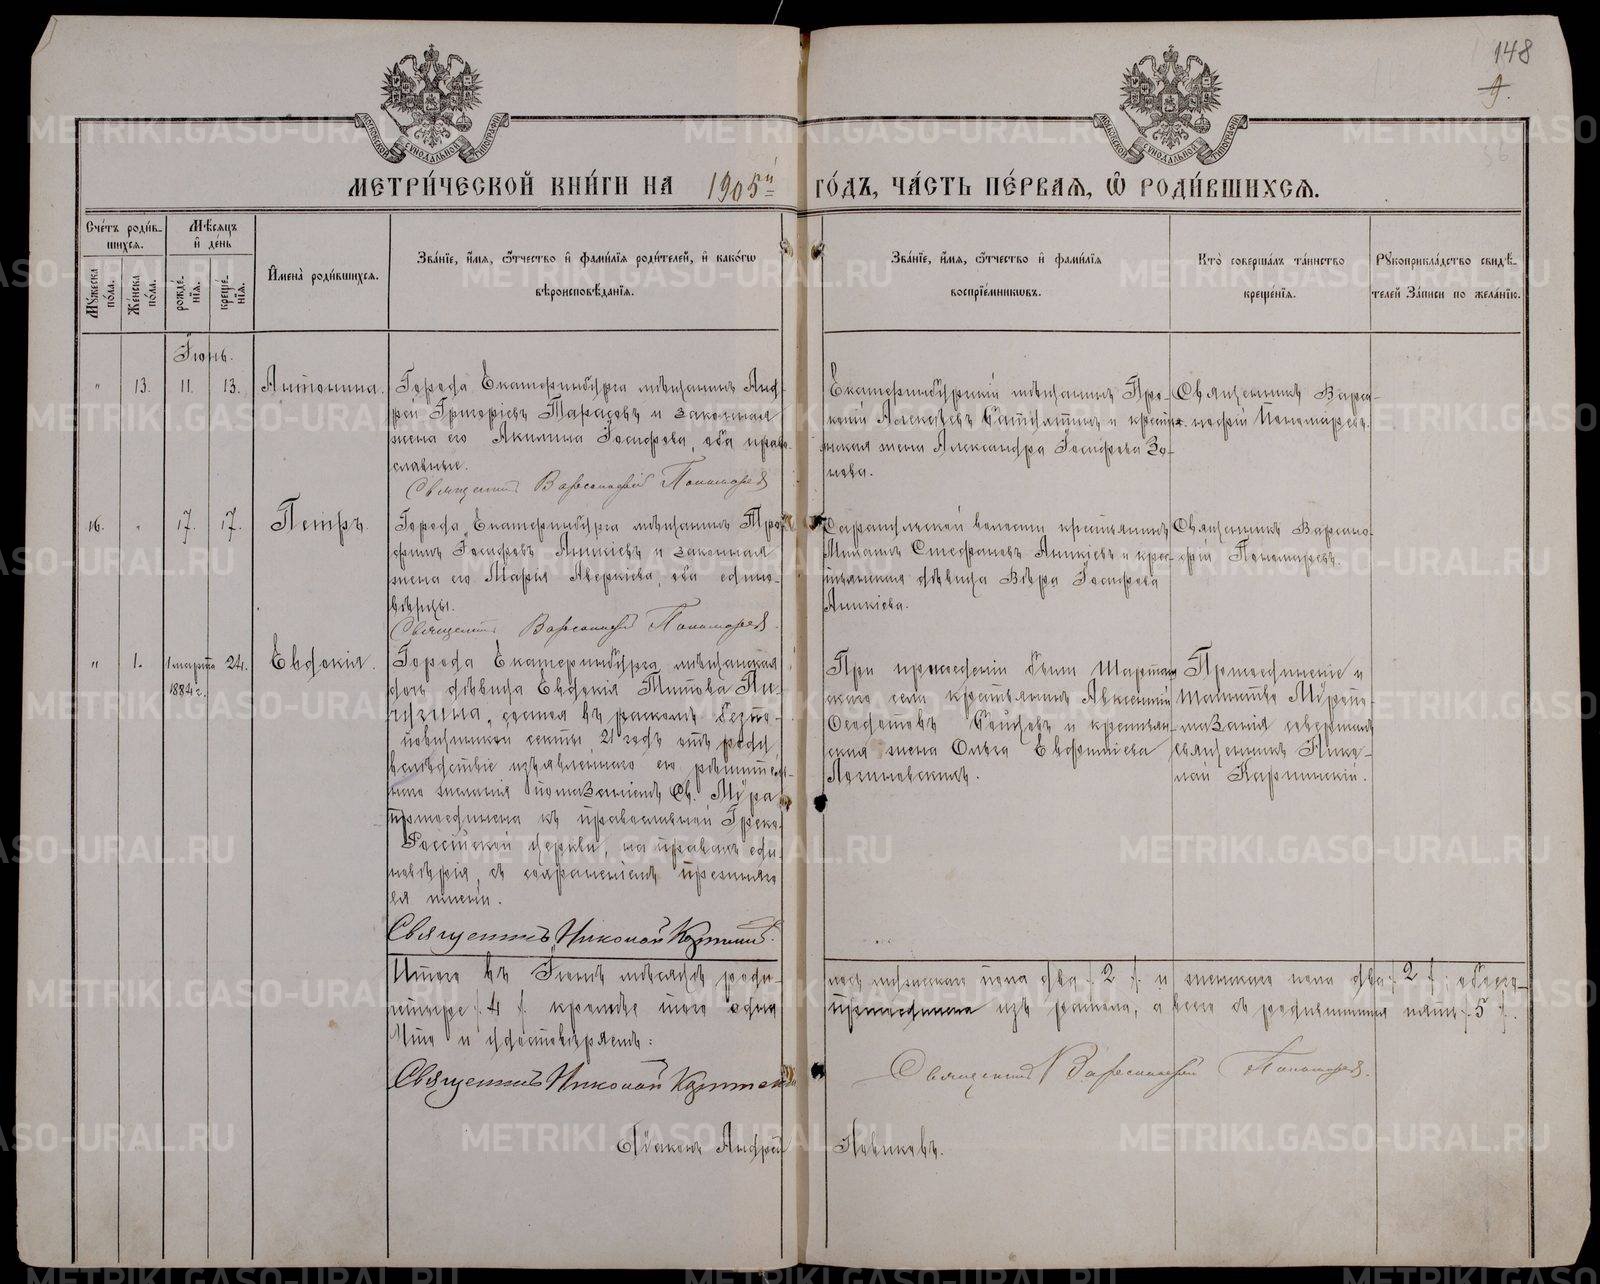 148
9.
МЕТРИ́ЧЕСКОЙ КНИ́ГИ НА 1905й ГО́ДЪ, ЧА́СТЬ ПЕ́РВАЯ, Ѽ РОДИ́ВШИХСЯ.
Сче́тъ роди́в-
шихся.
Мѣ́сяцъ
и҆ де́нь
Мꙋ́жеска
по́ла.
Же́нска
по́ла.
рожде́-
нїя.
креще́-
нїя.
И҆мена̀ роди́вшихся.
Зва́нїе, и҆́мя, ѻ҆́тчество и҆ фами́лїя роди́телей, и҆ како́гѡ
вѣроисповѣ́данїя.
Зва́нїе, и҆́мя, ѻ҆́тчество и҆ фами́лїя
воспрїе́мникѡвъ.
Кто̀ соверша́лъ та́инство
креще́нїя.
Рꙋкоприкла́дство свидѣ́-
телей За́писи по жела́нїю.
Іюнь.
" 13. 11. 13. Антонина.
Города Екатеринбурга мѣщанинъ Анд-
рей Григоріевъ Тарасовъ и законная
жена его Акилина Іосифова, оба право-
славные.
Священникъ Варсонофій Пономаревъ
Екатеринбургскій мѣщанинъ Про-
копій Алексѣевъ
и крестья-
нская жена Александра Іосифова Зо-
това.
Священникъ Варсо-
нофій Пономаревъ.
16. " 17. 17. Петръ.
Города Екатеринбурга мѣщанинъ Тро-
фимъ Іосифовъ Аникіевъ и законная
жена его Марія Аверкіева, оба едино-
вѣрцы.
Священникъ Варсонофій Пономаревъ.
волости крестьянинъ
Михаилъ Стефановъ Аникіевъ и крес-
тьянская дѣвица Вѣра Іосифова
Аникіева.
Священникъ Варсоно-
фій Пономаревъ.
" 1. 1 марта 24. Евдокія.
1884 г.
Города Екатеринбурга мѣщанская
дочь дѣвица Евдокія Титова
состоя въ расколѣ безпо-
повщинской секты, 21 годъ отъ роду
вслѣдствіе изъявленнаго ею рѣшитель-
наго желанія помазаніемъ Св. Мѵра
присоединена къ православной Греко-
Россійской церкви, на правахъ еди-
новѣрія, съ сохраненіемъ прежняго
ея имени.
Священникъ Николай Карпинскій.
При присоединеніи были Шарташ-
скаго села крестьянинъ Авксентій
Ѳеодотовъ
и крестьян-
ская жена Ольга Евфиміева
Логиновскихъ.
Присоединеніе и
таинство Мѵропо-
мазанія совершилъ
священникъ Нико-
лай Карпинскій.
Итого въ Іюнѣ мѣсяцѣ роди-
лось мужескаго пола два /. 2 /. и женскаго пола два /. 2 /. обоего
четыре /. 4 /. кромѣ того одна
присоединена изъ раскола, а всего съ родившимися пять /. 5 /.
Что и удостовѣряемъ:
Священникъ Николай Карпинскій
Священникъ Варсонофій Пономаревъ.
Діаконъ Андрей Новиковъ.
METRIKI.GASO-URAL.RU